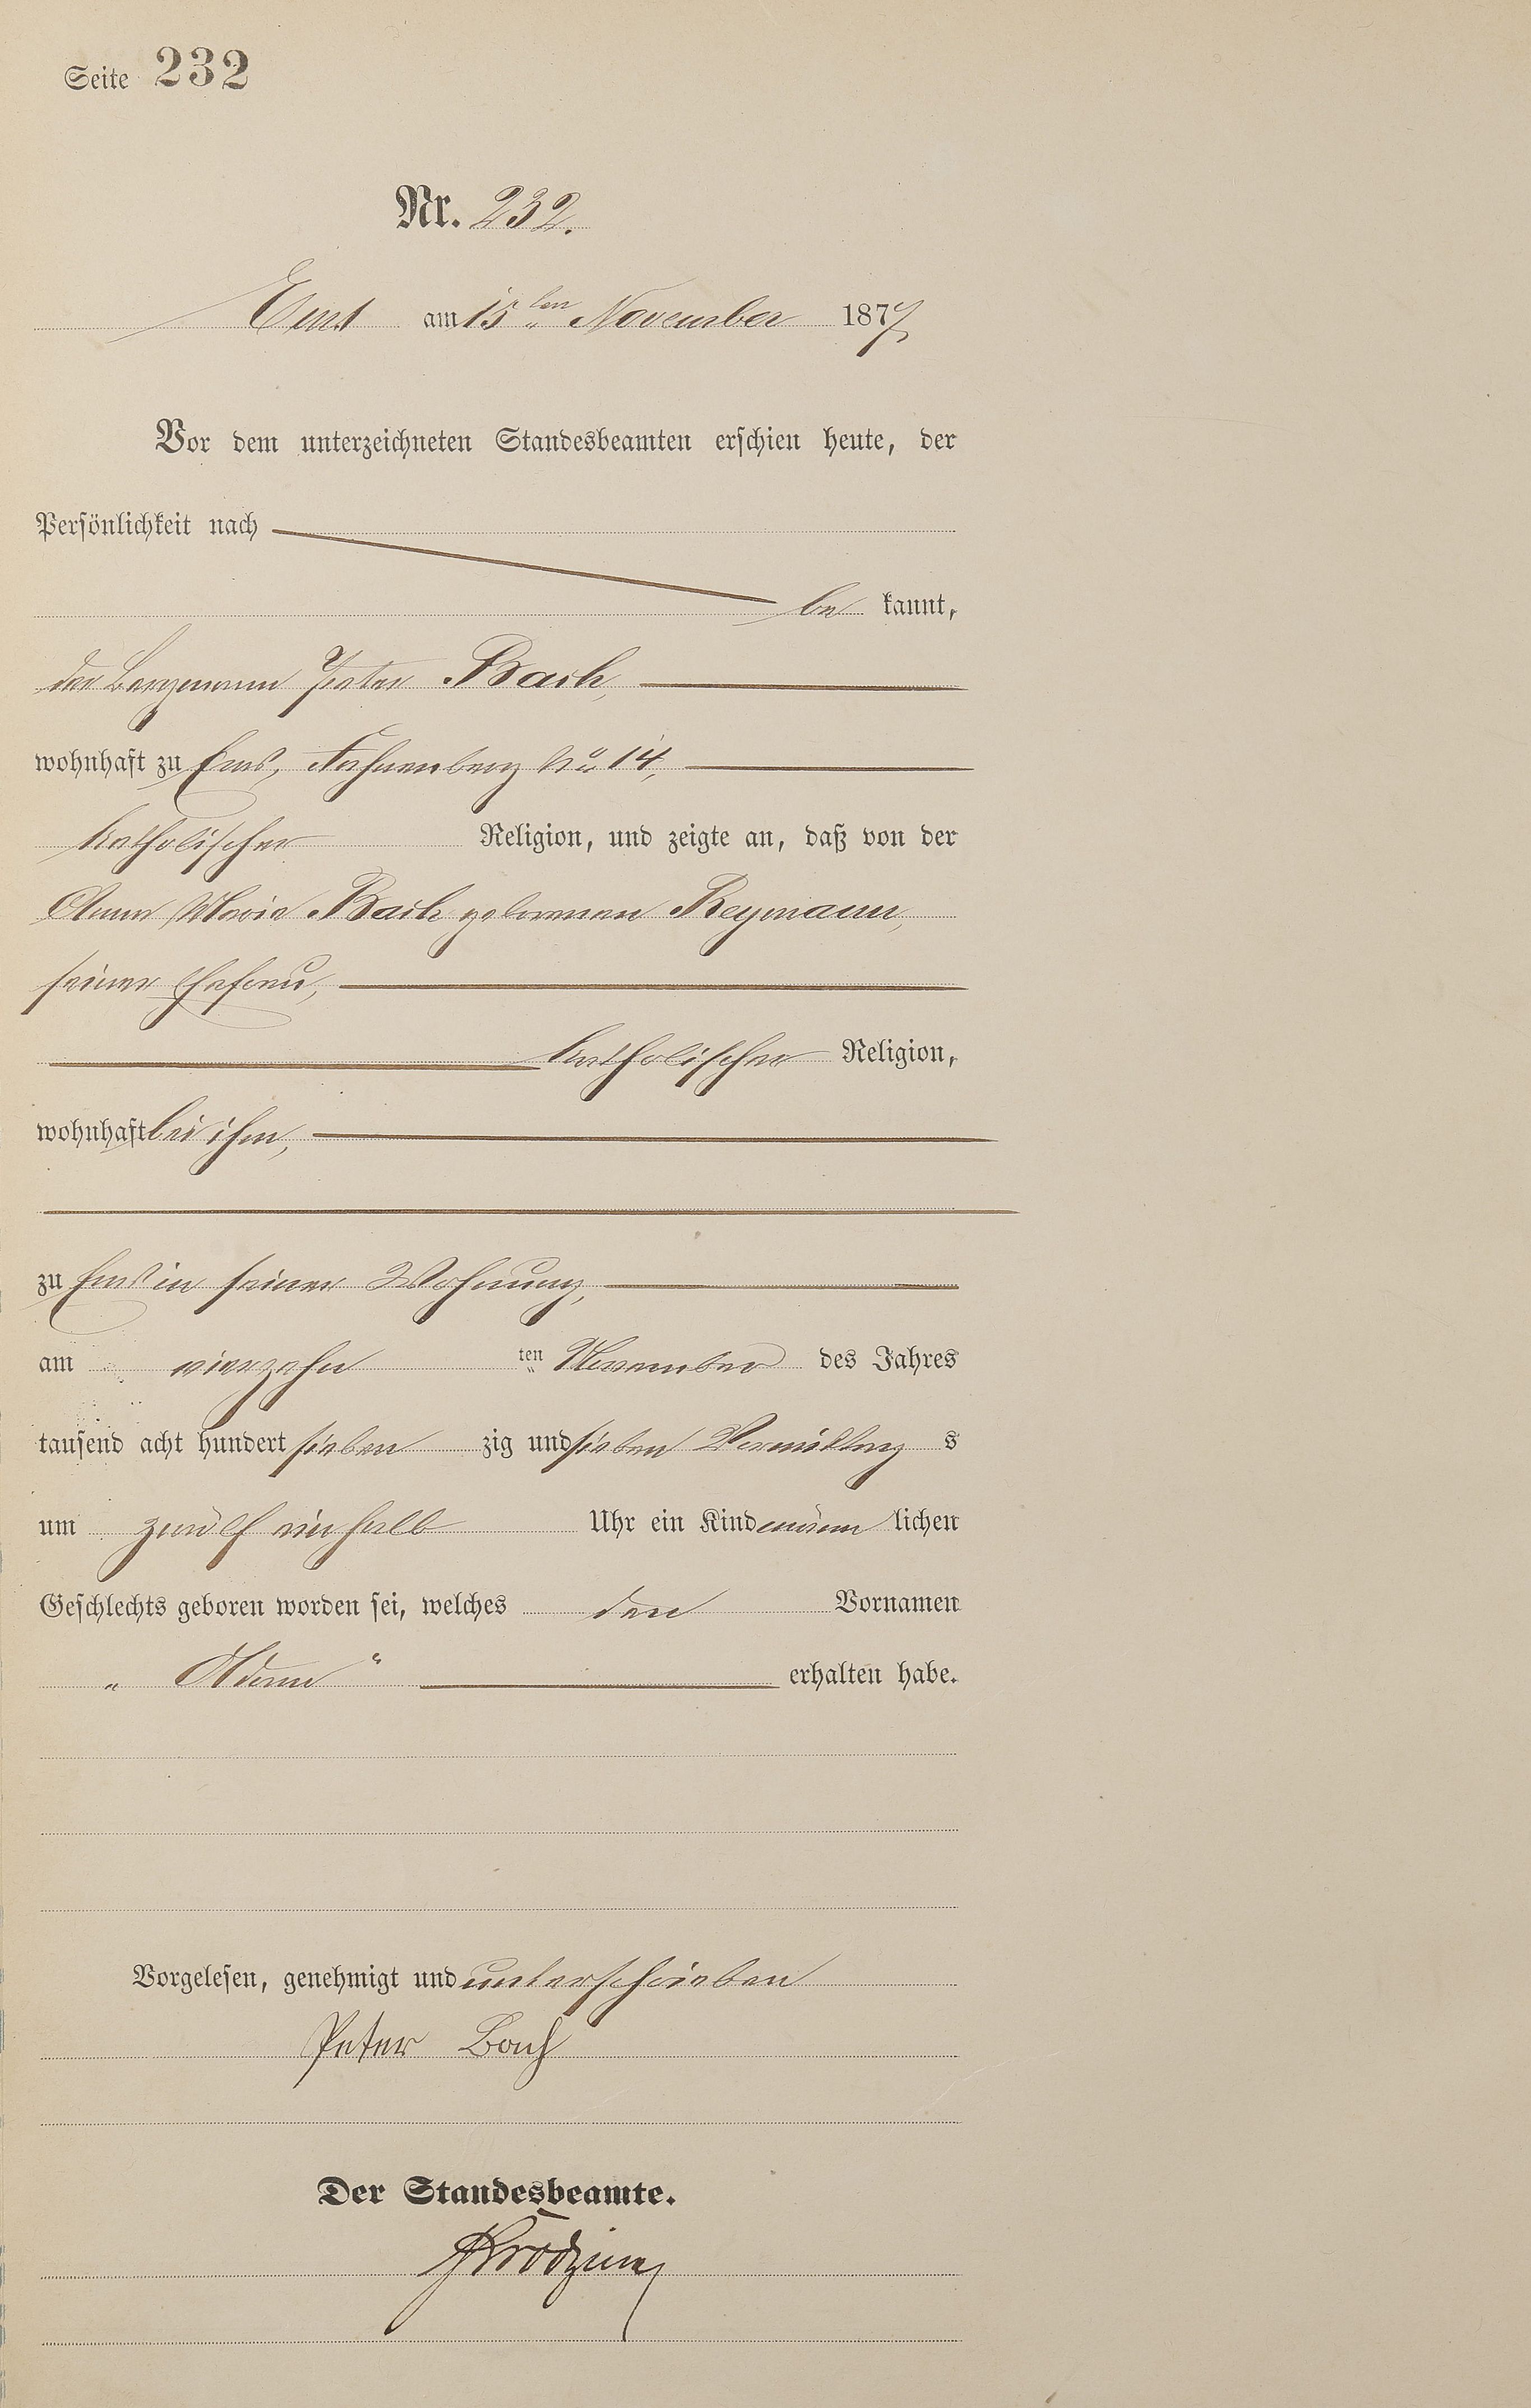 Seite 232
Nr. 232.
Ems am 15ten November 1877
Vor dem unterzeichneten Standesbeamten erschien heute, der
Persönlichkeit nach
be kannt,
der Bergmann Peter Bach,
wohnhaft zu Ems, Fahnenberg No 14,
katholischer Religion, und zeigte an, daß von der
Anna Maria Bach geborenen Reymann,
seiner Ehefrau,
katholischer Religion,
wohnhaft bei ihm,
zu Ems in seiner Wohnung,
am vierzehn ten November des Jahres
tausend acht hundert sieben zig und sieben Vormittag s
um zwölf einhalb Uhr ein Kind männ lichen
Geschlechts geboren worden sei, welches den Vornamen
„Adam“ erhalten habe.
Vorgelesen, genehmigt und unterschrieben
Peter Bach
Der Standesbeamte.